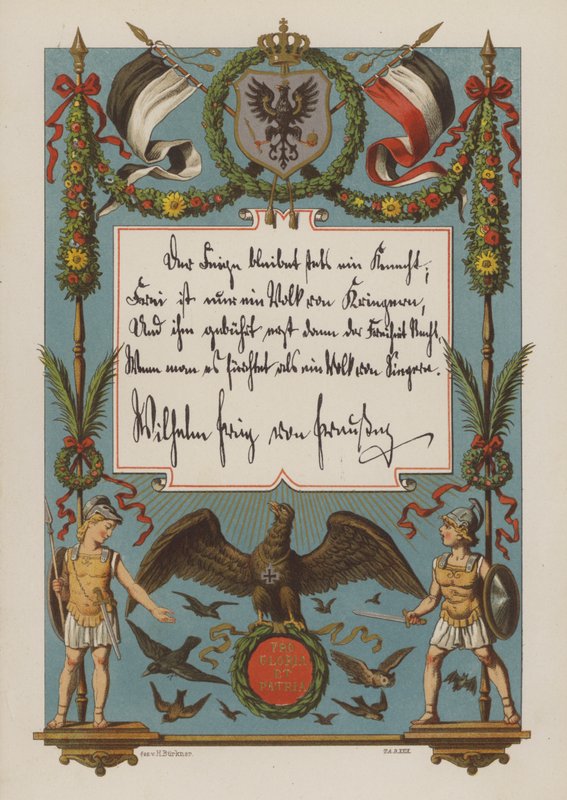 Der Feige bleibet stets ein Knecht;
Frei ist nur ein Volk von Kriegern,
Und ihm gebührt erst dann der Freiheit Recht,
Wenn man es fürchtet als ein Volk von Siegern.
Wilhelm Prinz von Preußen
PRO
GLORIA
ET
PATRIA
Gez. v. H. Bürkner.